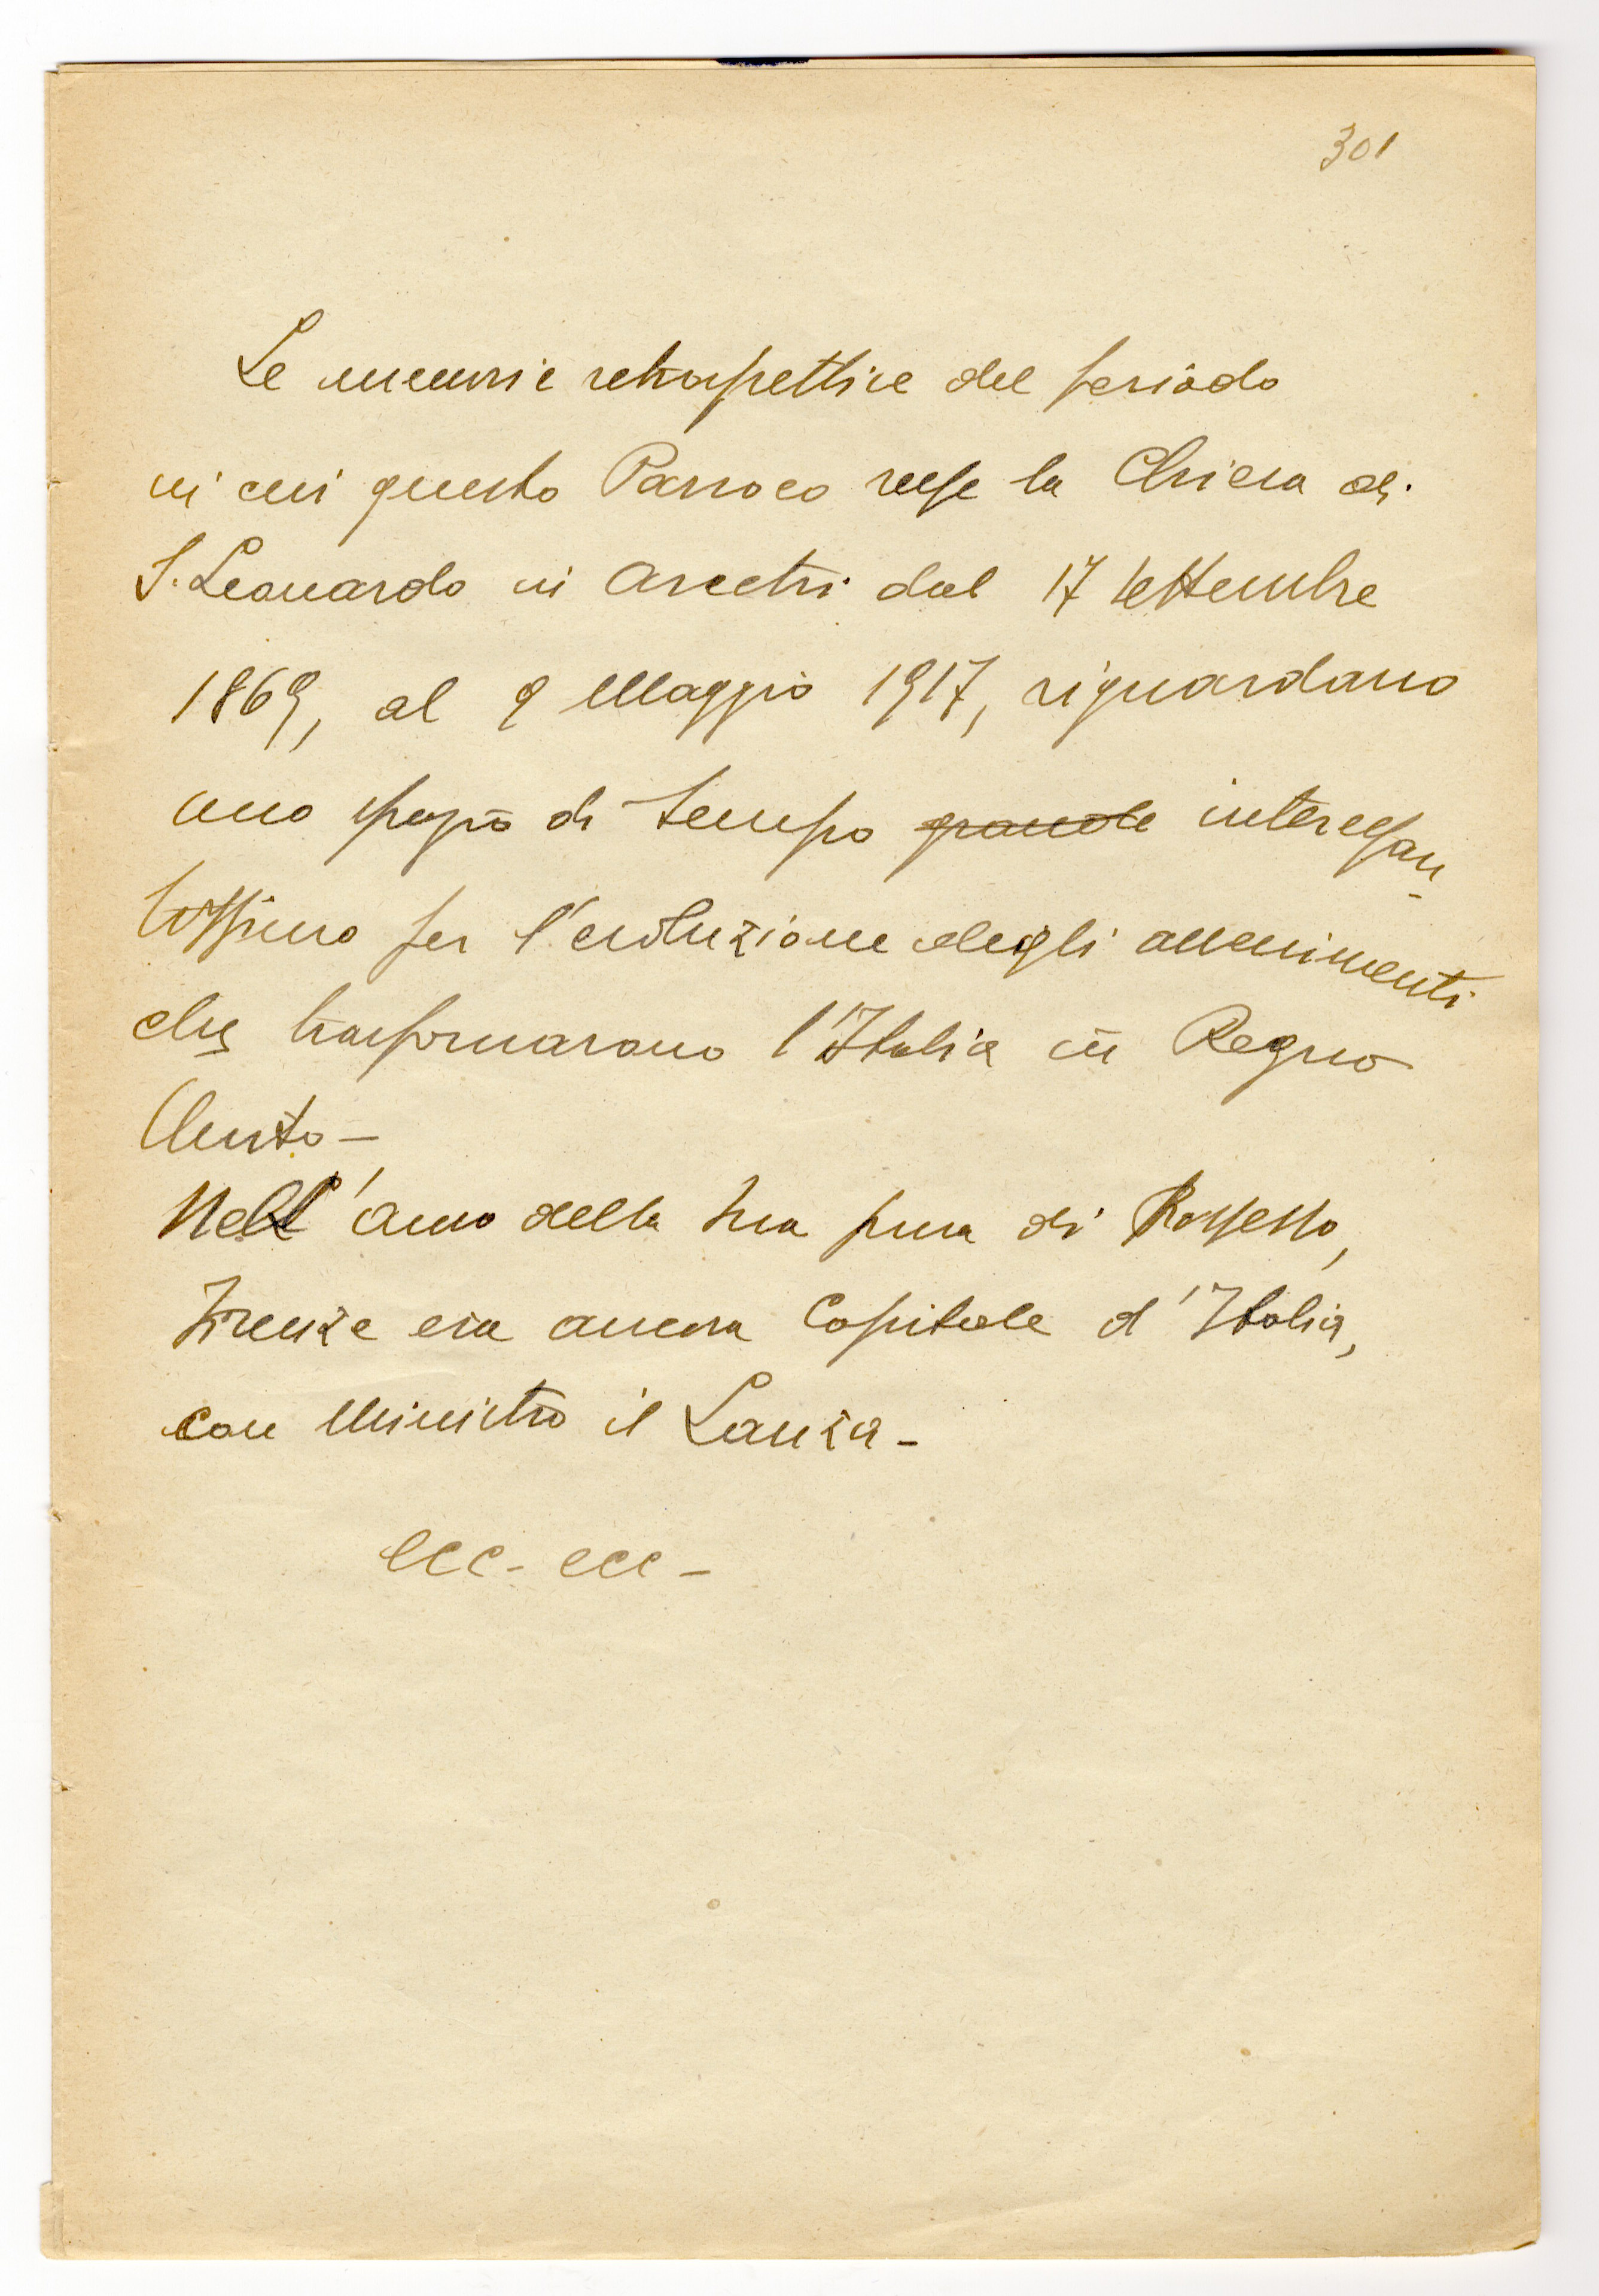 301
Le memorie retrospettive del periodo
in cui questo Parroco resse la Chiesa di
S. Leonardo in Arcetri dal 17 Settembre
1869, al 9 Maggio 1917, riguardano
uno spazio di tempo grande interessan-
tissimo per l'evoluzione degli avvenimenti
che trasformarono l'Italia in Regno
Unito -
Nell'anno della sua presa di Possesso,
Firenze era ancora Capitale d'Italia,
con Ministro il Lanza -
ecc - ecc -